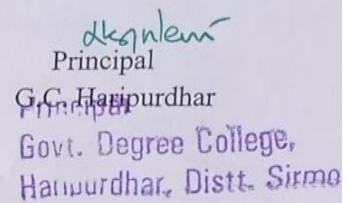 Principal
G.C. Haripurdhar
Principal
Govt. Degree College,
Haripurdhar, Distt. Sirmo